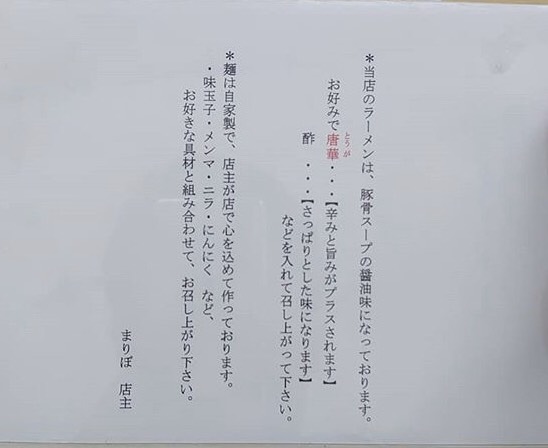 ＊当店のラーメンは、豚骨スープの醤油味になっております。
お好みで唐華・・・【辛みと旨みがプラスされます】
とうが
酢　・・・【さっぱりとした味になります】
などを入れて召し上がって下さい。
＊麺は自家製で、店主が店で心を込めて作っております。
・味玉子・メンマ・ニラ・にんにく　など、
お好きな具材と組み合わせて、お召し上がり下さい。
まりぼ　店主